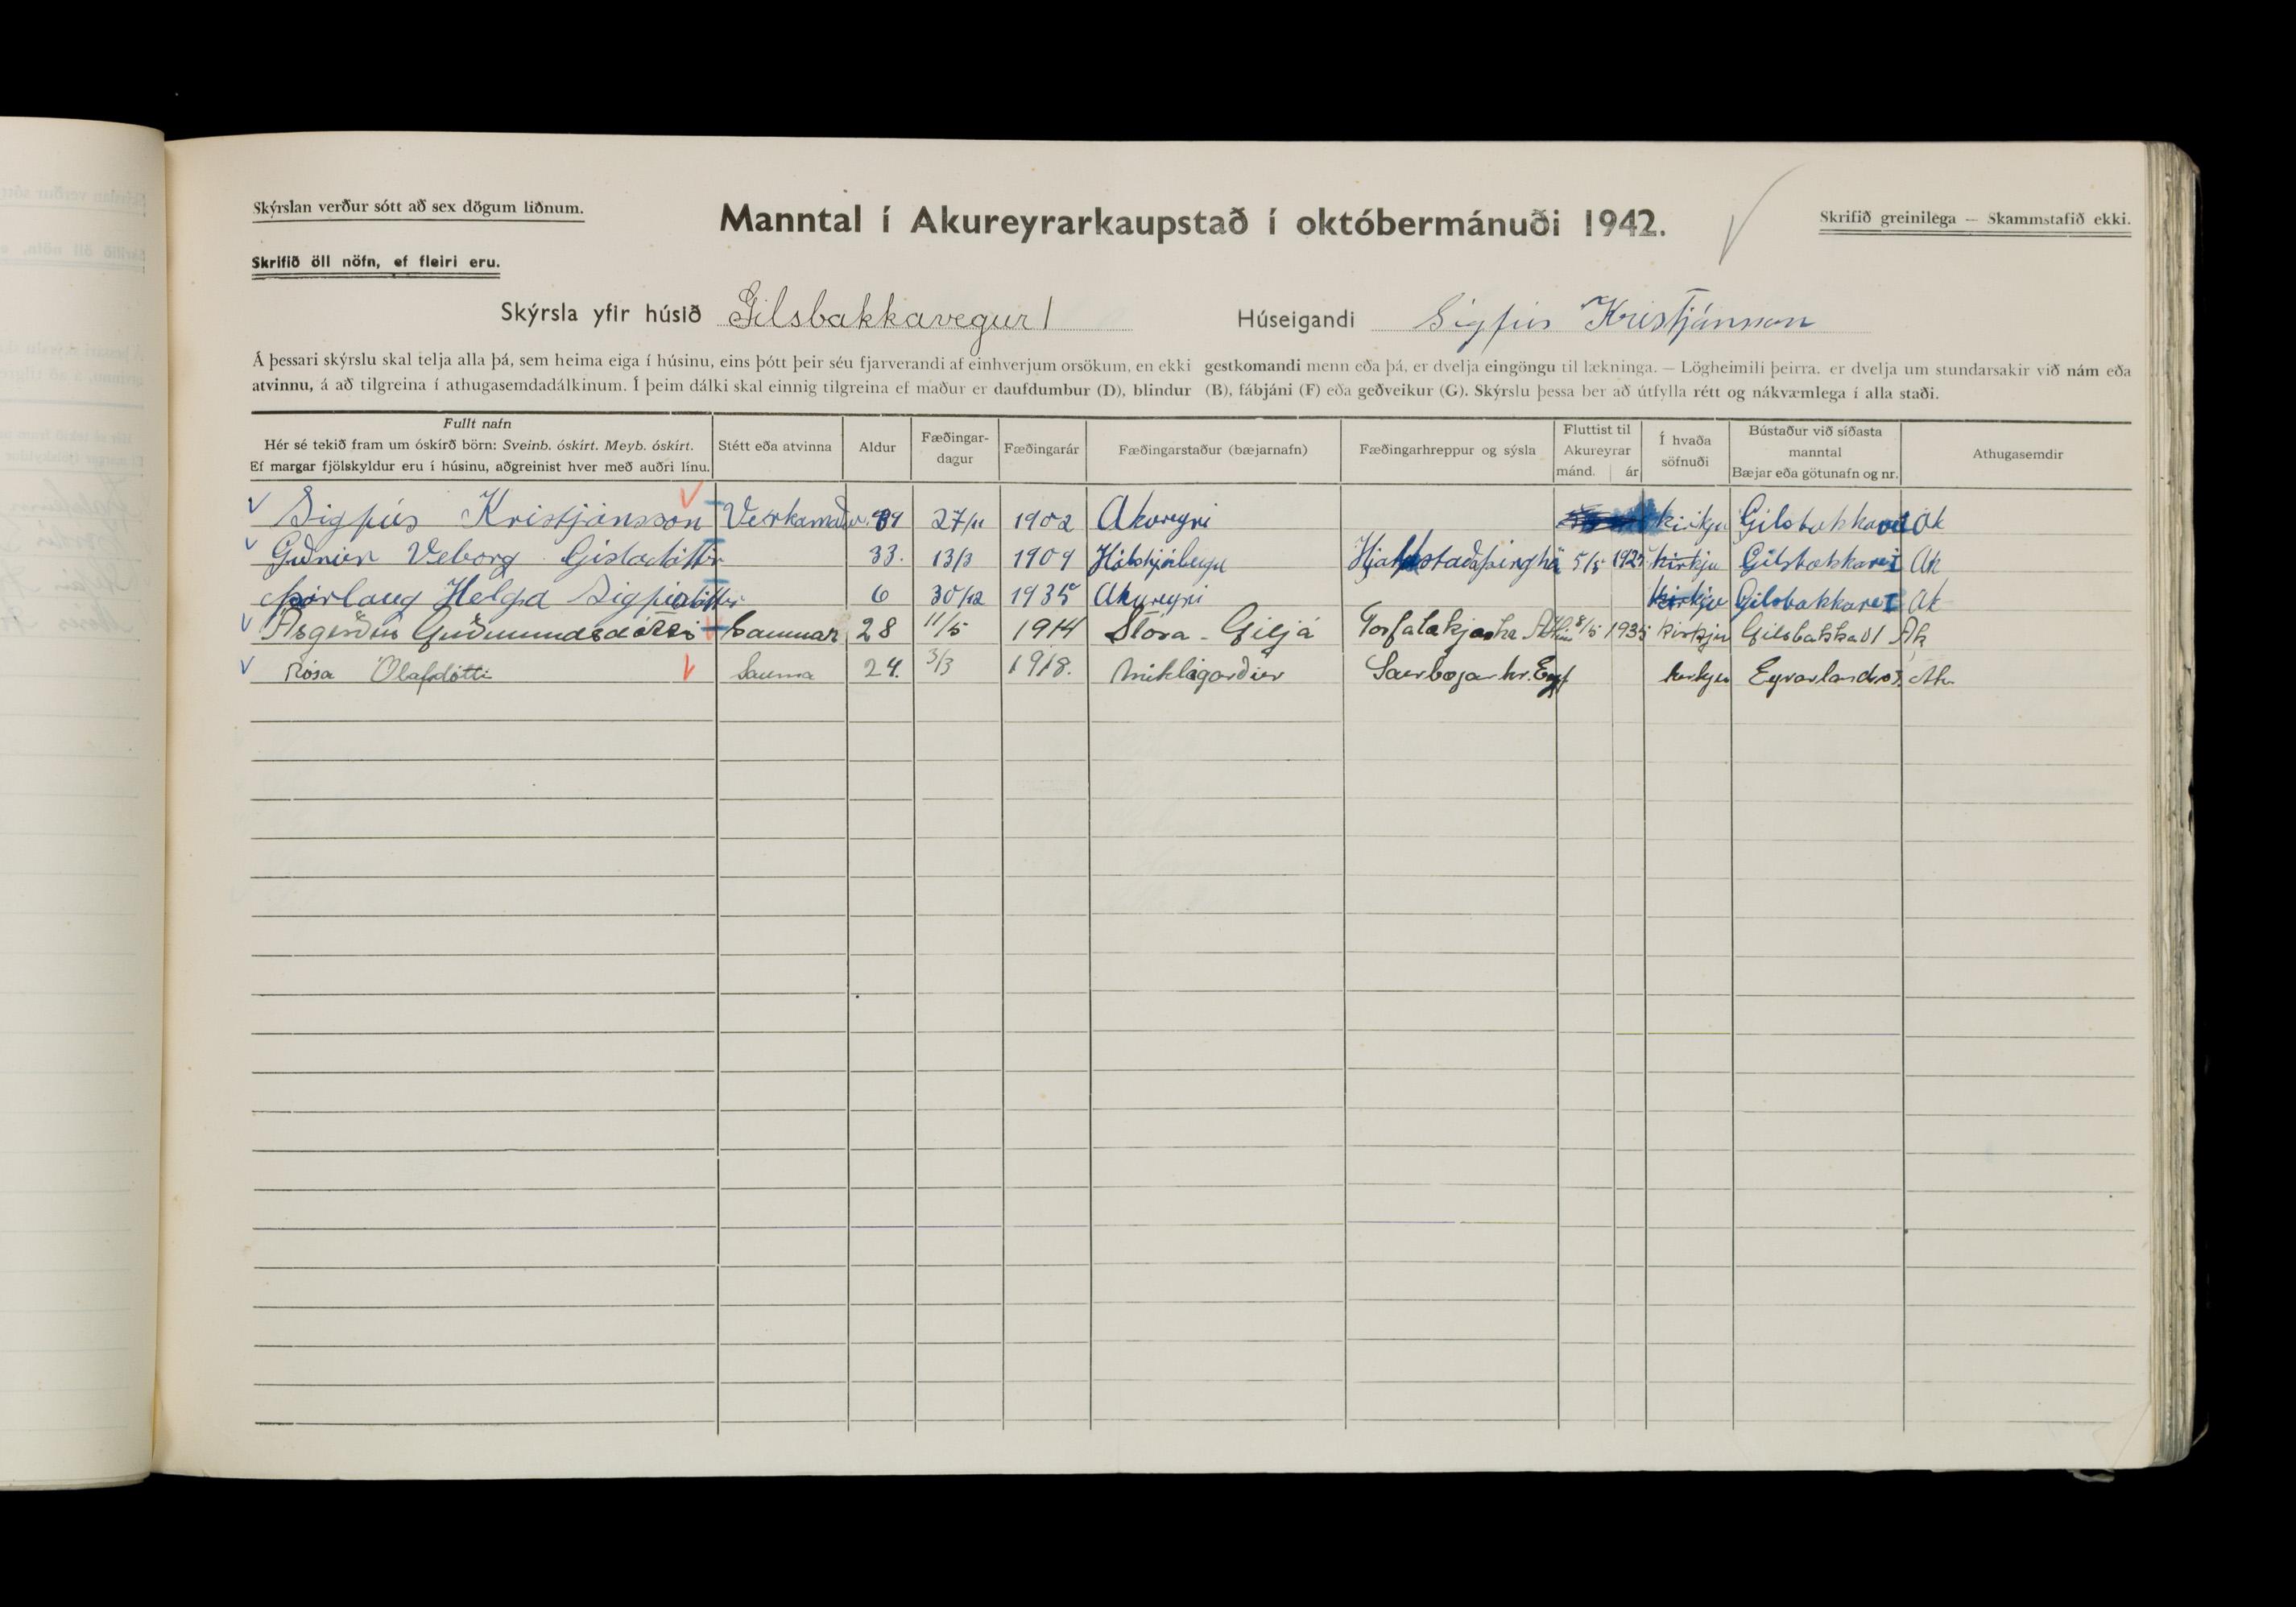 Skýrslan verður sótt að sex dögum liðnum.
Manntal í Akureyrarkaupstað í októbermánuði 1942.
Skrifið greinilega — Skammstafið ekki.
Skrifið öll nöfn, ef fleiri eru.
Skýrsla yfir húsið Gilsbakkavegur 1 Húseigandi Sigfús Kristjánsson
Á þessari skýrslu skal telja alla þá, sem heima eiga í húsinu, eins þótt þeir séu fjarverandi af einhverjum orsökum, en ekki gestkomandi menn eða þá, er dvelja eingöngu til lækninga. — Lögheimili þeirra. er dvelja um stundarsakir við nám eða
atvinnu, á að tilgreina í athugasemdadálkinum. Í þeim dálki skal einnig tilgreina ef maður er daufdumbur (D), blindur (B), fábjáni (F) eða geðveikur (G). Skýrslu þessa ber að útfylla rétt og nákvæmlega í alla staði.
Fullt nafn
Hér sé tekið fram um óskírð börn: Sveinb. óskírt. Meyb. óskírt.
Ef margar fjölskyldur eru í húsinu, aðgreinist hver með auðri línu.
Stétt eða atvinna
Aldur
Fæðingar-
dagur
Fæðingarár
Fæðingarstaður (bæjarnafn)
Fæðingarhreppur og sýsla
Fluttist til
Akureyrar
mánd. ár
Í hvaða
söfnuði
Bústaður við síðasta
manntal
Bæjar eða götunafn og nr.
Athugasemdir
Sigfús Kristjánsson Verkamaður. 39 27/11 1902 Akureyri kirkju Gilsbakkave 1 Ak
Guðrún Veborg Gísladóttir 33. 13/3 1909 Hjaltastaðaþinghá 5/5 1925 kirkju Gilsbakkave I Ak
Þórlaug Helga Sigfúsdóttir 6 30/12 1935 Akureyri kirkju Gilsbakkave I Ak
Ásgerður Guðmundsdóttir Saumar 28 11/5 1914 Stóra-Giljá Torfalækjarhr. A.Hún 8/5 1935 kirkju Gilsbakkav 1 Ak
Rósa Ólafsdóttir Sauma 24. 3/3 1918. Miklagarður Saurbæjarhr. Eyf kirkju Eyrarlandsv. Ak.